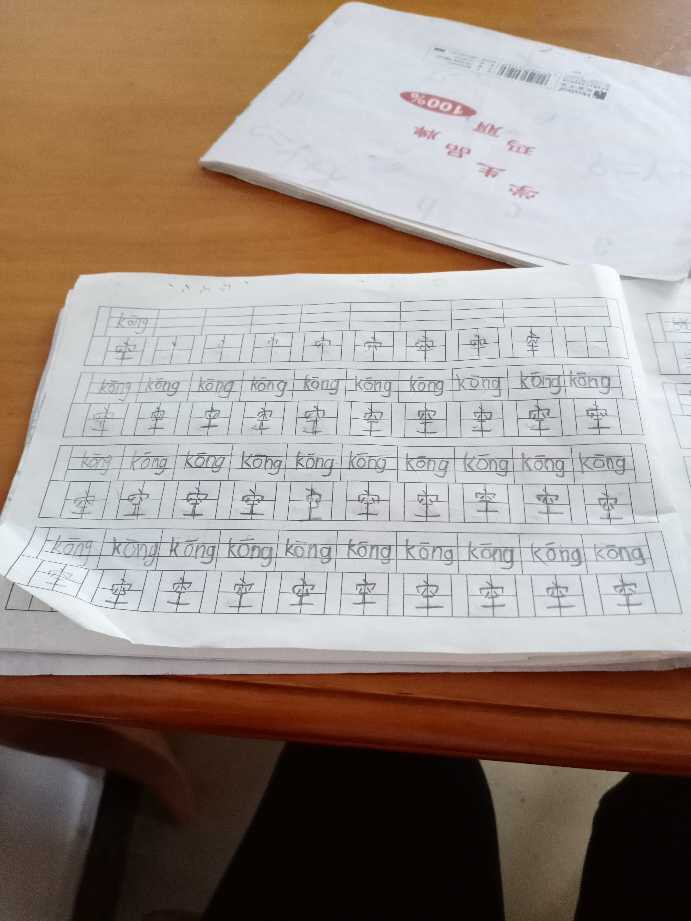 学生品牌
玛丽
100%
kōng
空 空
kōng kōng kōng kōng kōng kōng kōng kōng kōng kōng
空 空 空 空 空 空 空 空 空 空
kōng kōng kōng kōng kōng kōng kōng kōng kōng kōng
空 空 空 空 空 空 空 空 空 空
kōng kōng kōng kōng kōng kōng kōng kōng kōng kōng
空 空 空 空 空 空 空 空 空 空